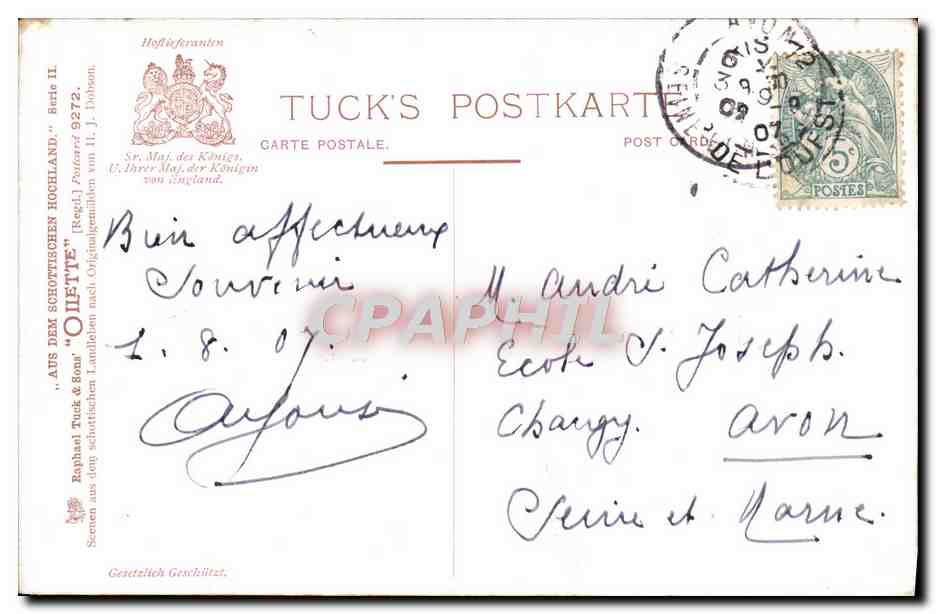 Hoflieferanten
Sr. Maj. des Königs.
U. Ihrer Maj. der Königin
von England.
TUCK'S POSTKARTE
CARTE POSTALE.
POST CARD
„AUS DEM SCHOTTISCHEN HOCHLAND." Serie II.
Raphael Tuck & Sons' "OILETTE" [Regd.] Postcard 9272.
Scenen aus dem schottischen Landleben nach Originalgemälden von H. J. Dobson.
AVON
DE L'OUEST
5c
POSTES
Bien affectueux
Souvenir
1. 8. 07.
M. André Catherine
Ecole St Joseph.
Changy. Avon
Seine et Marne.
CPAPHIL
Gesetzlich Geschützt.